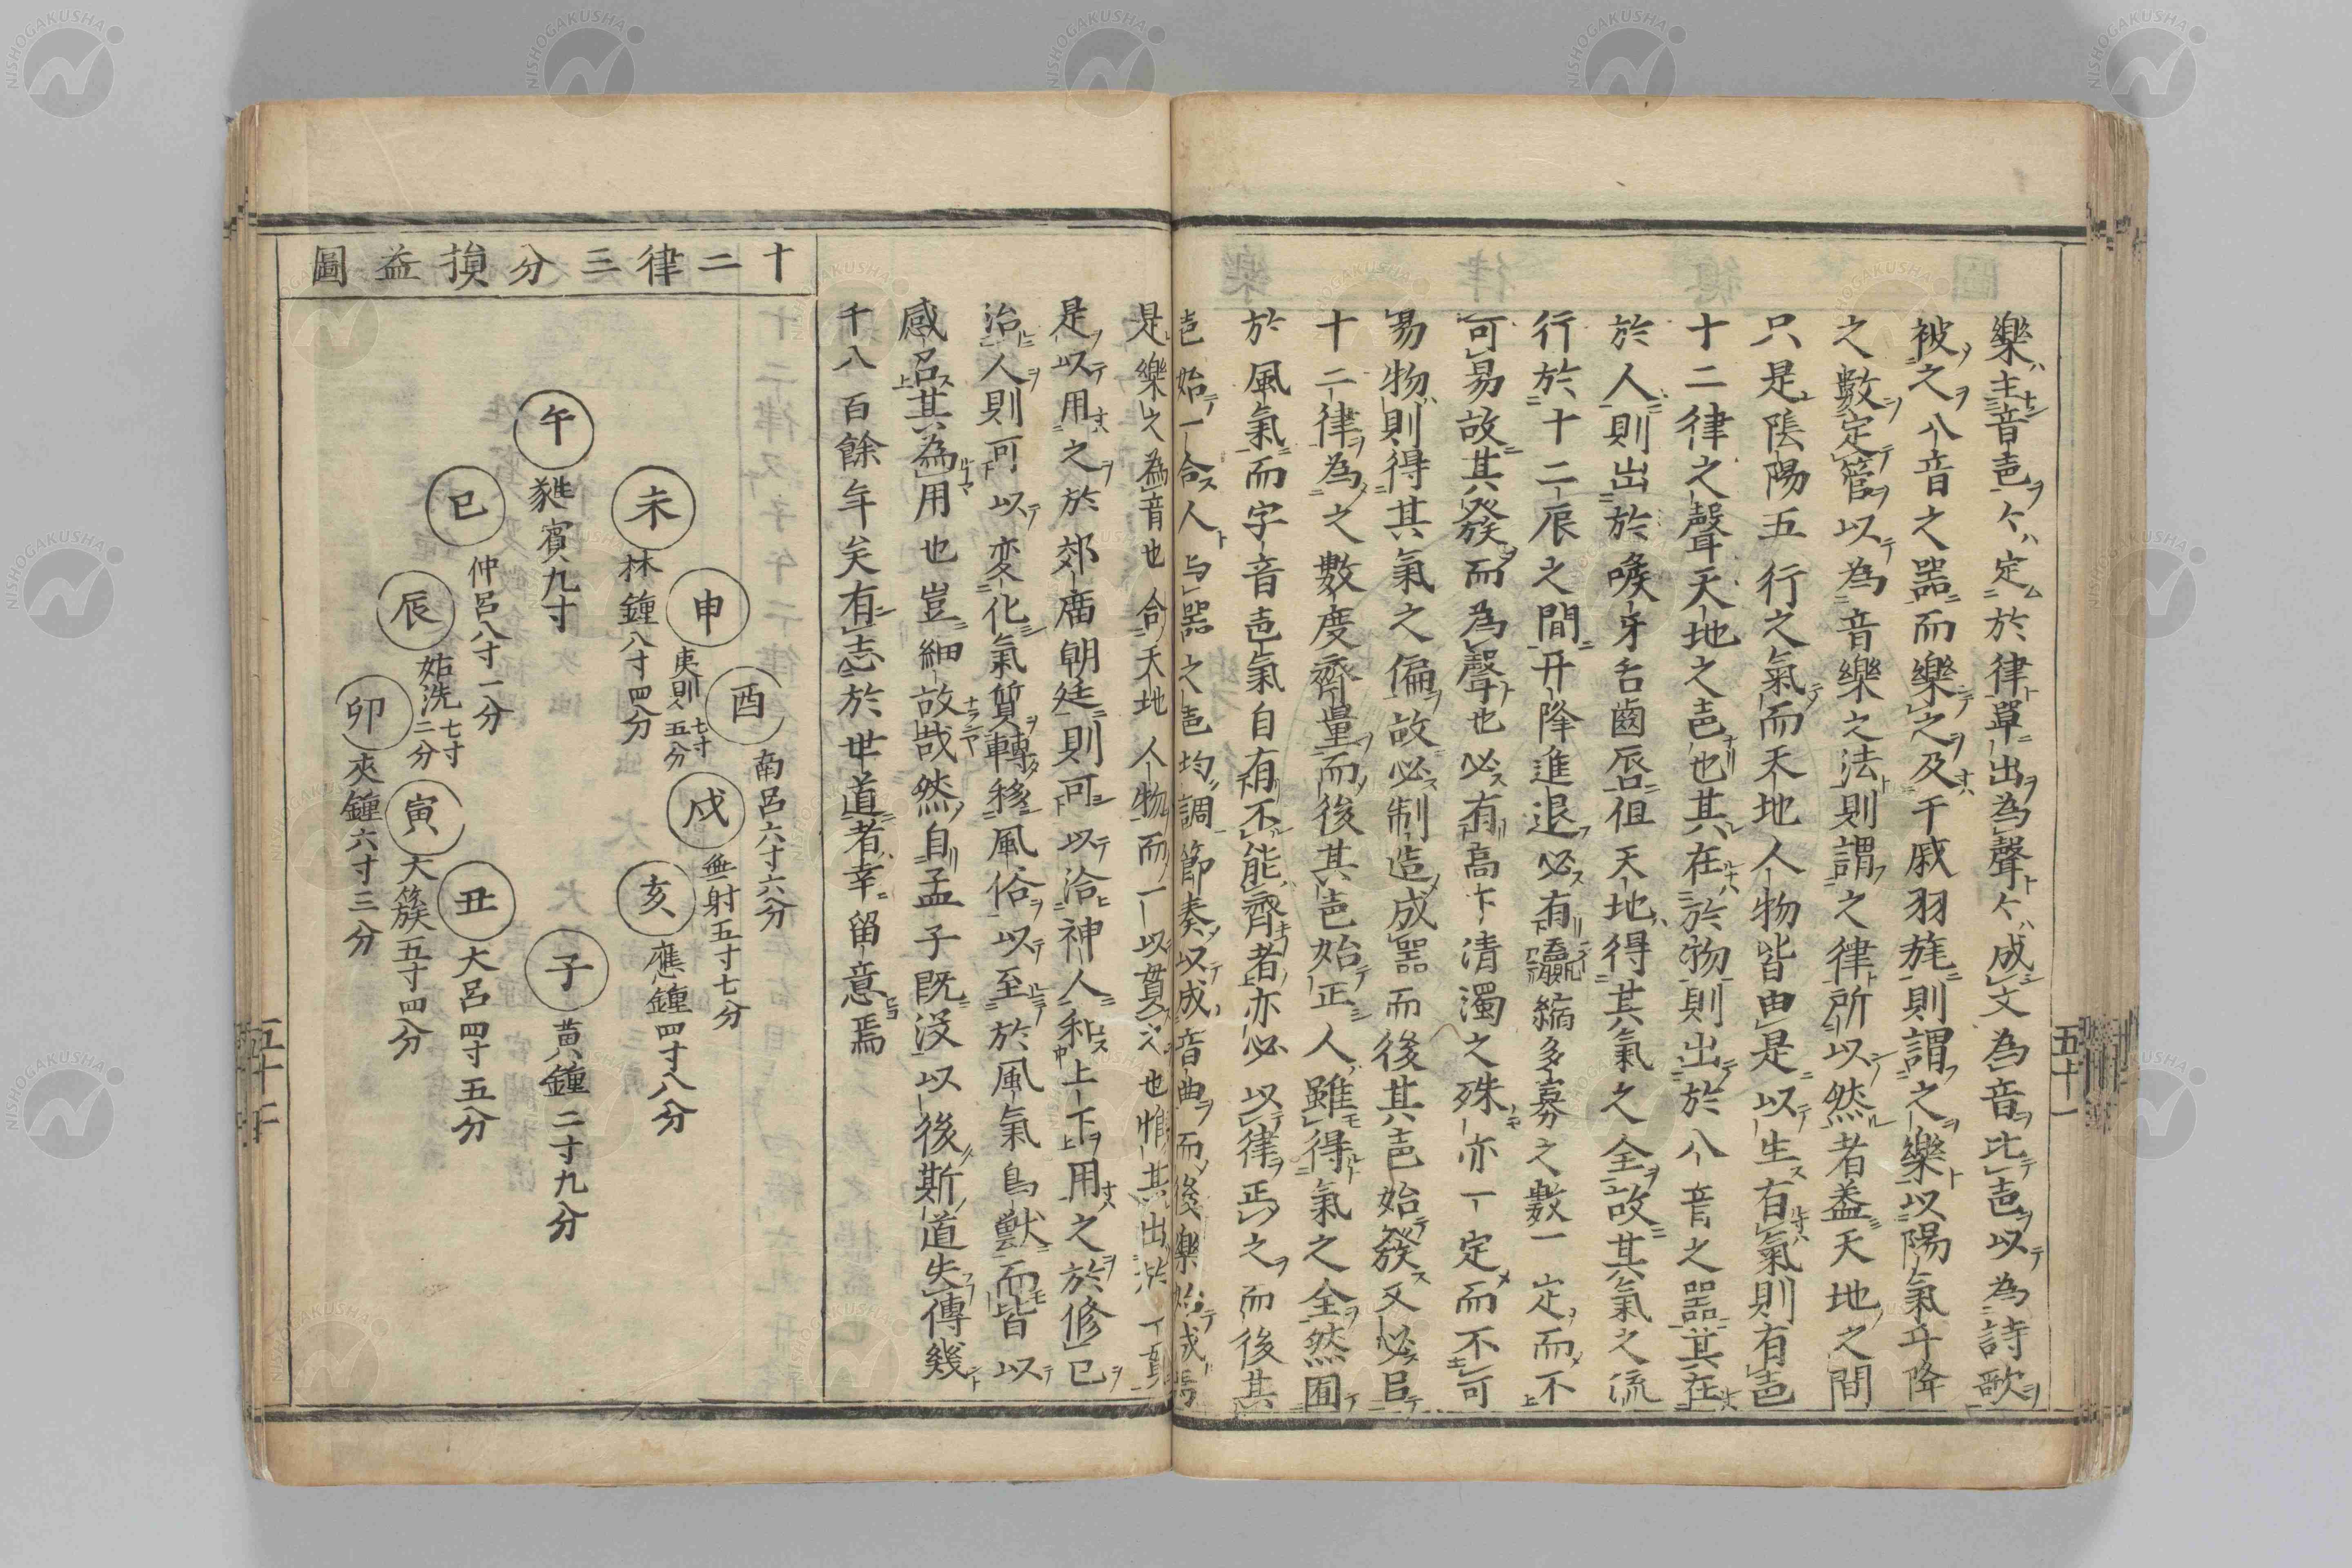 樂主音㐵〻定於律單出為聲〻成文為音比㐵以為詩歌
被之八音之噐而樂之及干戚羽旄則謂之樂以陽氣升降
之數定管以為音樂之法則謂之律所以然者盖天地之間
只是隂陽五行之氣而天地人物皆由是以生有氣則有㐵
十二律之聲天地之㐵也其在於物則出於八音之噐其在
於人則出於喉牙舌齒唇但天地得其氣之全故其氣之流
行於十二辰之間升降進退必有瀛縮多寡之數一定而不
可易故其發而為聲也必有高下清濁之殊亦一定而不可
易物則得其氣之偏故必制造成噐而後其㐵始發又必㠯
十二律為之數度齊量而後其㐵始正人雖得氣之全然囿
於風氣而字音㐵氣自有不能齊者亦必以律正之而後其
㐵始一合人与噐之㐵均調節奏以成音曲而後樂始成焉
是樂之為音也合天地人物而一以貫之也惟其出於一貫
是以用之於郊廟朝廷則可以洽神人和上下用之於修已
治人則可以変化氣質轉移風俗以至於風氣鳥獸而皆以
感召其為用也豈細故哉然自孟子既没以後斯道失傳幾
千八百餘年矣有志於世道者幸留意焉
五十一
十二律三分損益圖
午 蕤賓九寸
未 林鐘八寸四分
申 夷則七寸五分
酉 南呂六寸六分
戌 無射五寸七分
亥 應鐘四寸八分
子 黃鐘二寸九分
丑 大呂四寸五分
寅 大簇五寸四分
卯 夾鐘六寸三分
辰 姑洗七寸二分
巳 仲呂八寸一分
NISHOGAKUSHA